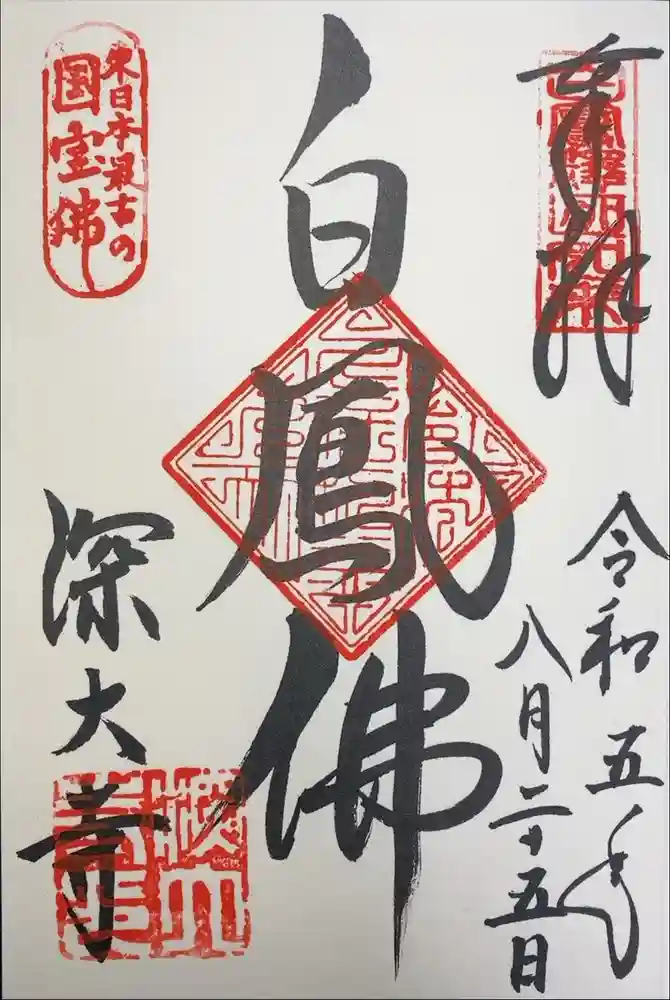 奉拝
令和五年
八月二十五日
白鳳佛
東日本最古の
国宝佛
深大寺